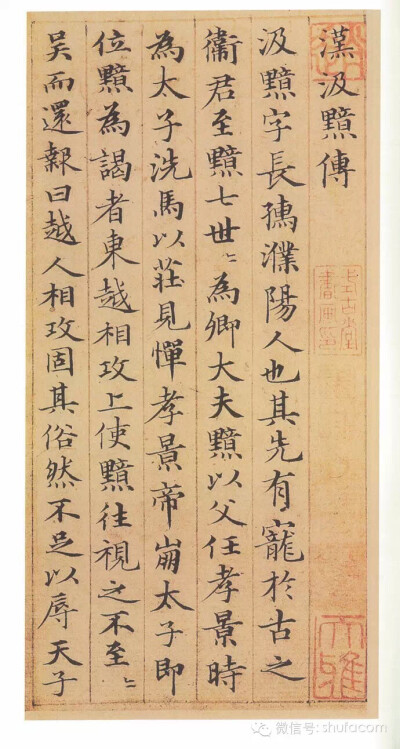 漢汲黯傳
汲黯字長孺濮陽人也其先有寵於古之
衛君至黯七世〻為卿大夫黯以父任孝景時
為太子洗馬以莊見憚孝景帝崩太子即
位黯為謁者東越相攻上使黯往視之不至〻
吳而還報曰越人相攻固其俗然不足以辱天子
式古堂
書畫印
微信号: shufacom